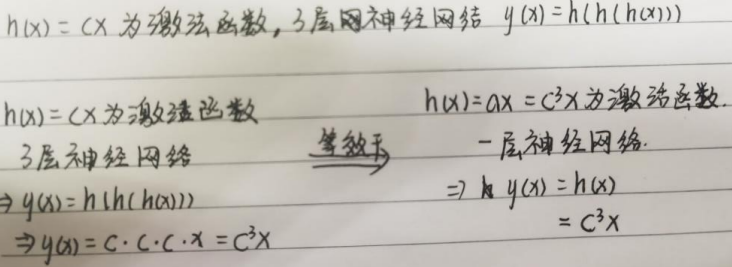 h(x) = cx 为激活函数, 3层网神经网结 y(x) = h(h(h(x)))
h(x) = cx 为激活函数
3层神经网络
⇒ y(x) = h(h(h(x)))
⇒ y(x) = c·c·c·x = c³x
等效于
h(x) = ax = c³x 为激活函数.
一层神经网络.
⇒ y(x) = h(x)
= c³x